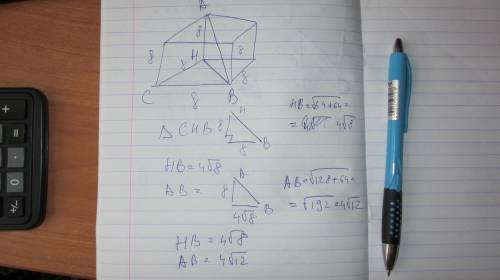 A
8
8
8
H
8
8
C
8
B
△CHB
H
8
8
B
HB=√64+64=
= 4√8
HB=4√8
AB=
A
8
4√8
B
AB=√128+64=
=√192=4√12
HB=4√8
AB=4√12